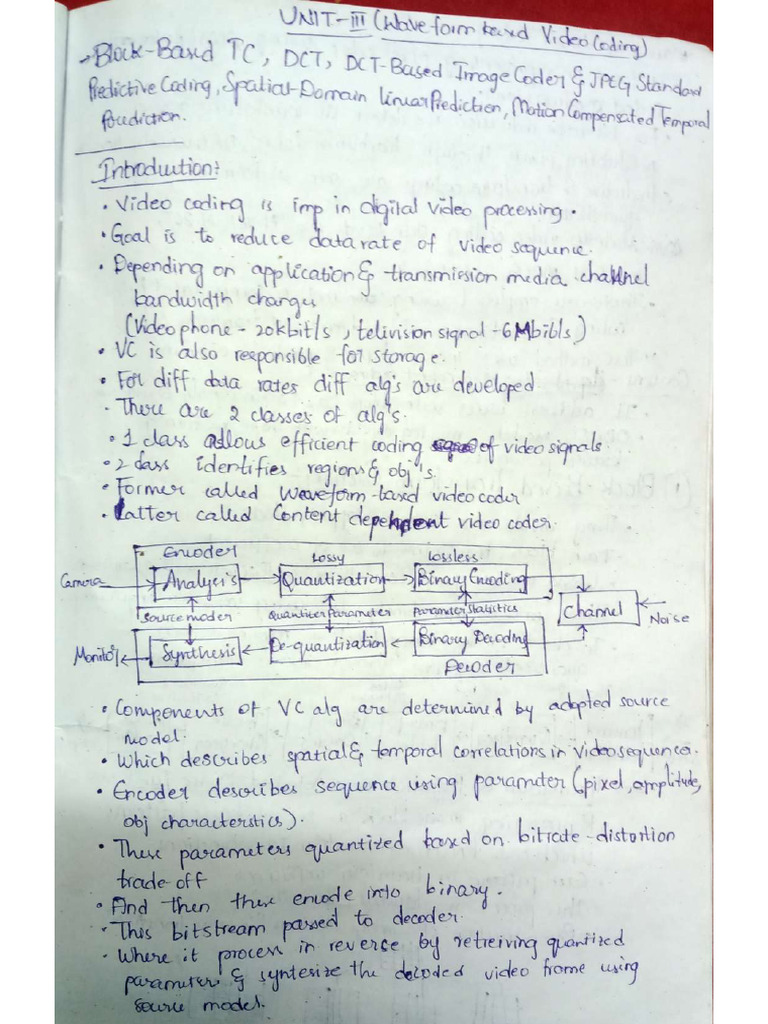 UNIT-III (Waveform based Video Coding)
→Block-Based TC, DCT, DCT-Based Image Coder & JPEG Standard
Predictive Coding, Spatial-Domain linear Prediction, Motion Compensated Temporal
Prediction.
Introduction:
• Video coding is imp in digital video processing.
• Goal is to reduce data rate of video sequence.
• Depending on application & transmission media channel
bandwidth changes
(Video phone - 20kbit/s, telivision signal - 6Mbibls)
• VC is also responsible for storage.
• For diff data rates diff alg's are developed.
• There are 2 classes of alg's.
• 1 class allows efficient coding of video signals.
• 2 class identifies regions & obj's.
• Former called waveform-based video coder
• Latter called Content dependent video coder.
Encoder Lossy Lossless
Camera Analysis Quantization Binary Encoding
Source moder Quantizer Parameter Parameter Statistics Channel Noise
Monitor Synthesis De-quantization Binary Decoding
Decoder
• Components of VC alg are determined by adopted source
model.
• Which describes spatial & temporal correlations in video sequence.
• Encoder describes sequence using parameter (pixel, amplitude,
obj characterstics).
• These parameters quantized based on bitrate-distortion
trade-off
• And then these encode into binary.
• This bitstream passed to decoder.
• Where it process in reverse by retreiving quantized
parameters & syntesize the decoded video frame using
source model.